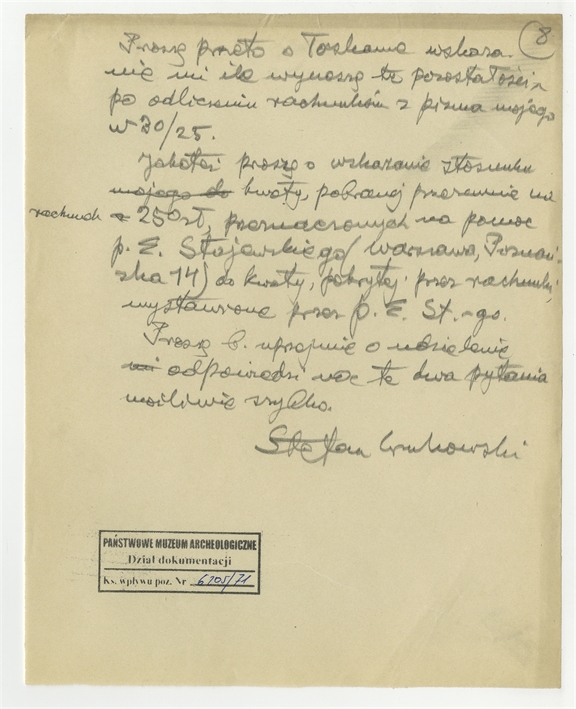 8
Proszę przeto o łaskawe wskaza-
nie mi ile wynoszą te pozostałości
po odliczeniu rachunków z pisma mojego
w 30/25.
Jakoteż proszę o wskazanie stosunku
mojego do kwoty, pobranej przezemnie na
rachunek 250 zł, przeznaczonych na pomoc
p. E. Stojewskiego (Warszawa, Poznań-
ska 14) do kwoty, pokrytej przez rachunki,
wystawione przez p. E. St.-go.
Proszę b. uprzejmie o udzielenie
mi odpowiedzi na te dwa pytania
możliwie szybko.
Stefan Krukowski
PAŃSTWOWE MUZEUM ARCHEOLOGICZNE
Dział dokumentacji
Ks. wpływu poz. Nr 6205/71